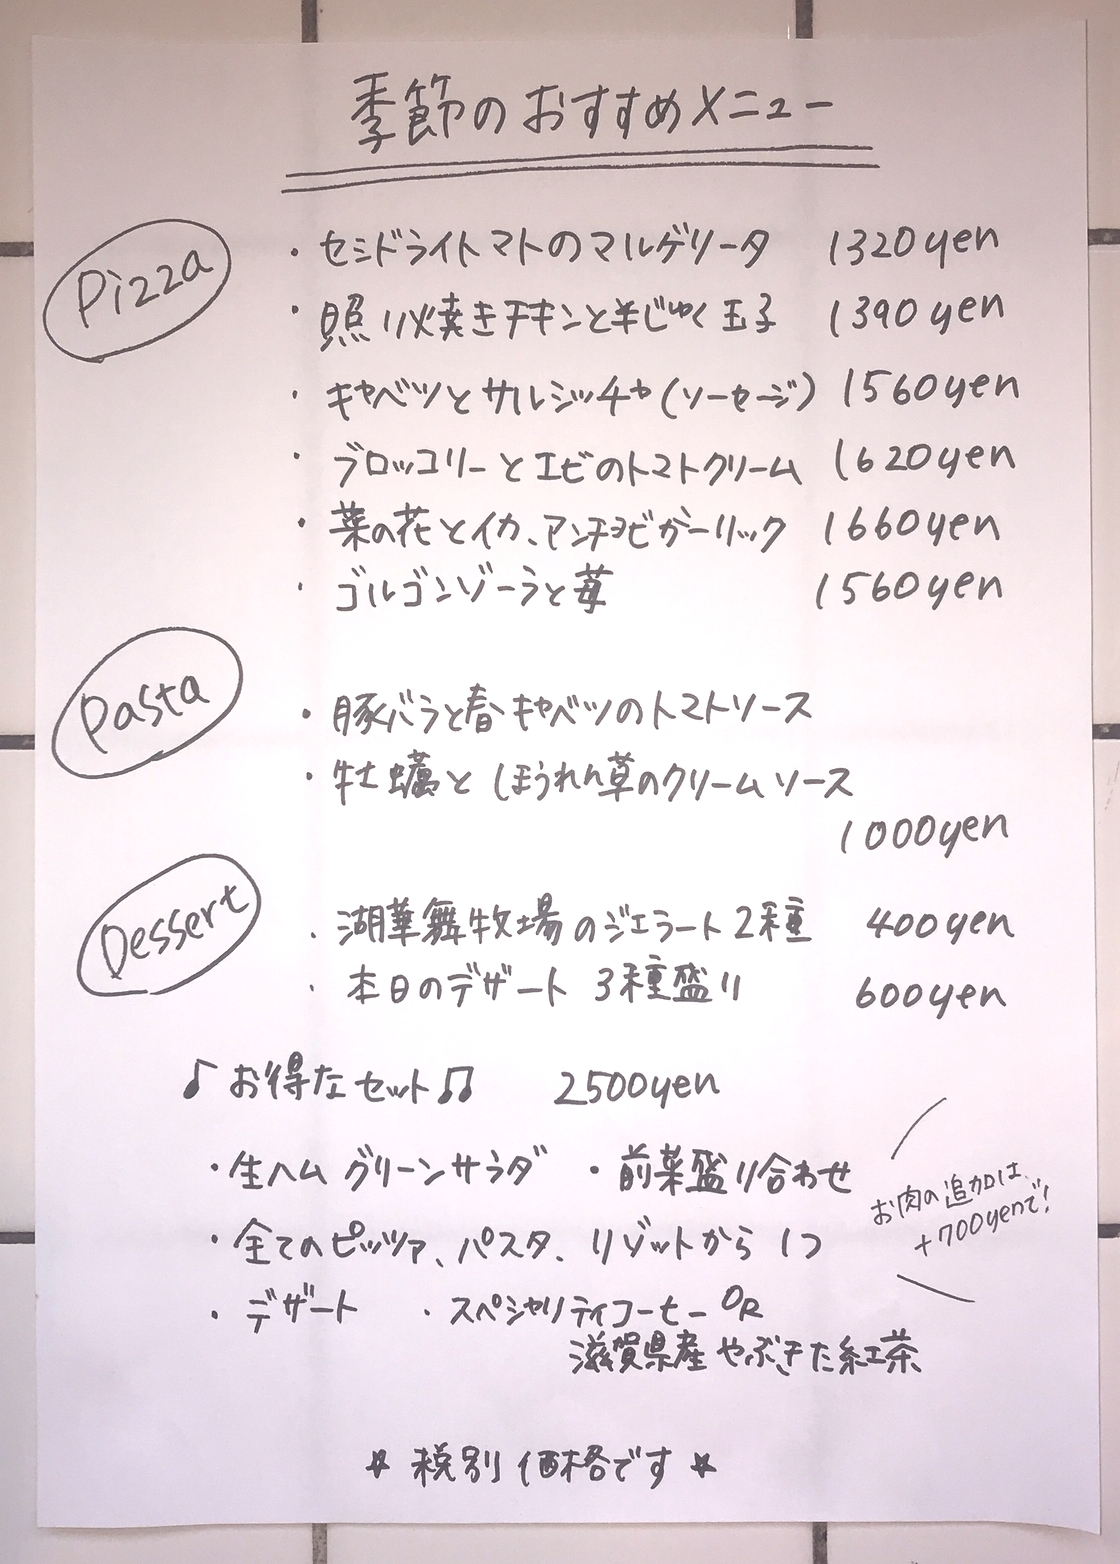 季節のおすすめメニュー
Pizza
・セミドライトマトのマルゲリータ 1320yen
・照り焼きチキンと半じゅく玉子 1390yen
・キャベツとサルシッチャ(ソーセージ) 1560yen
・ブロッコリーとエビのトマトクリーム 1620yen
・菜の花とイカ、アンチョビガーリック 1660yen
・ゴルゴンゾーラと苺 1560yen
Pasta
・豚バラと春キャベツのトマトソース
・牡蠣とほうれん草のクリームソース
1000yen
Dessert
・湖華舞牧場のジェラート2種 400yen
・本日のデザート 3種盛り 600yen
♪お得なセット♫ 2500yen
・生ハムグリーンサラダ ・前菜盛り合わせ
・全てのピッツァ、パスタ、リゾットから1つ
・デザート ・スペシャリティコーヒー OR
滋賀県産やぶきた紅茶
お肉の追加は、
+700yenで!
☆ 税別価格です ☆